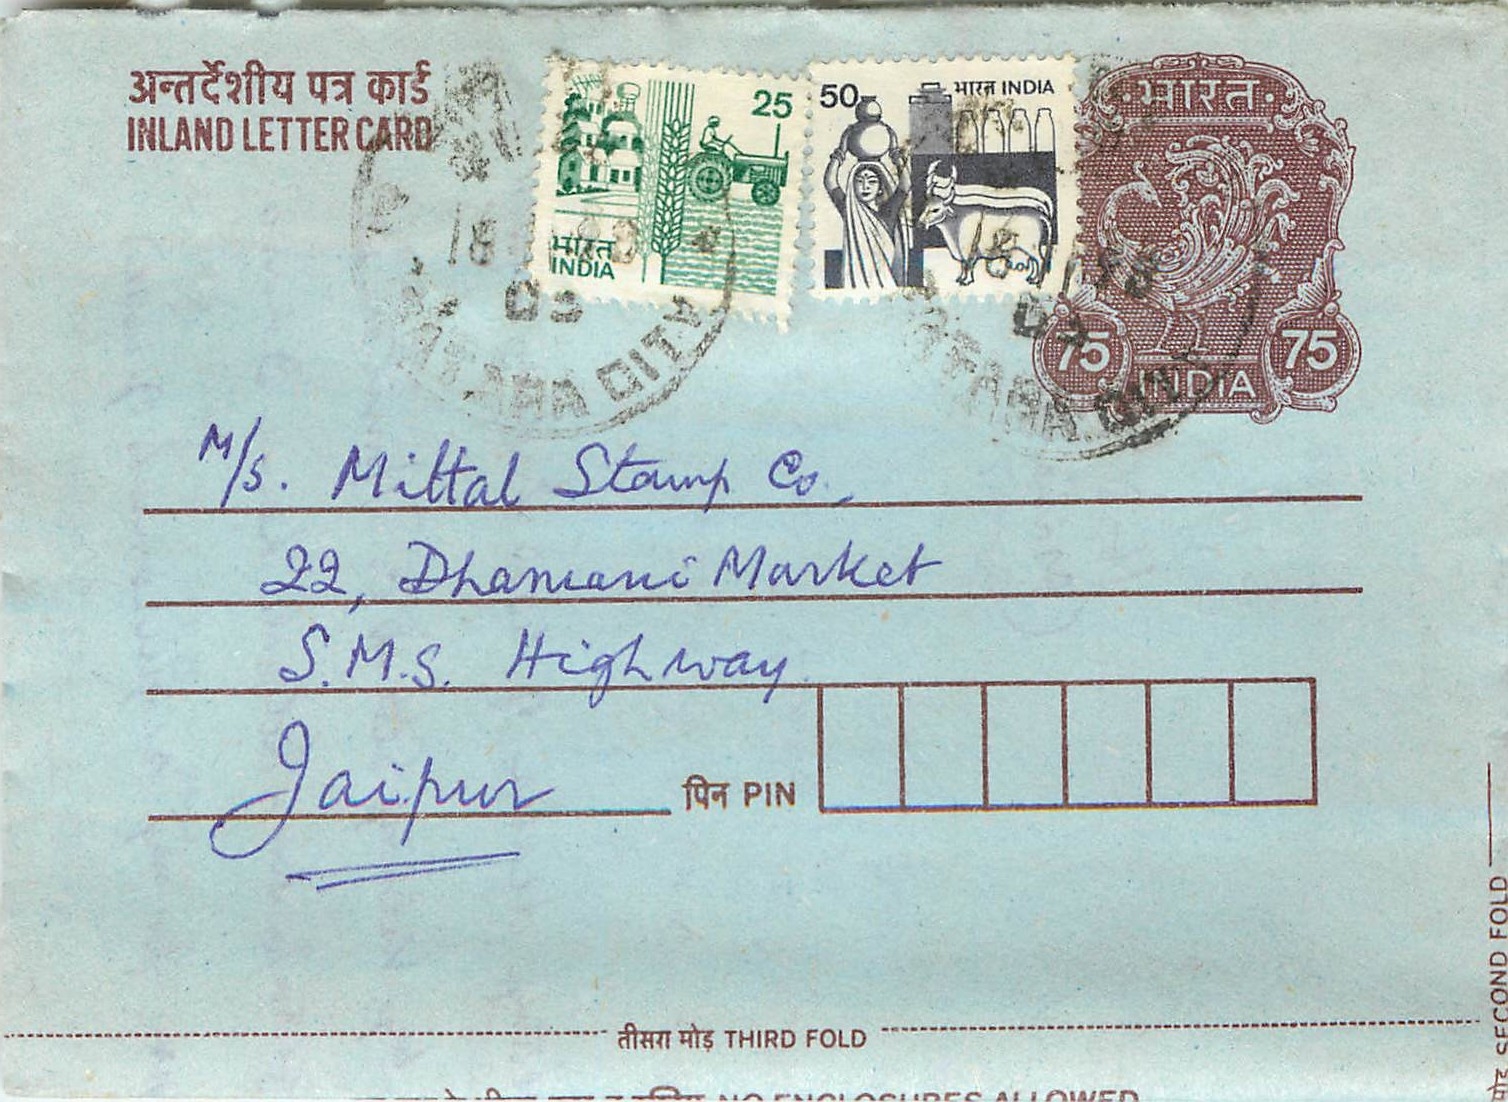 अन्तर्देशीय पत्र कार्ड
INLAND LETTER CARD
25
भारत
INDIA
50
भारत INDIA
भारत
75 75
INDIA
18
03
CITY
18
03
M/s. Mittal Stamp Co.
22, Dhamani Market
S.M.S. Highway
Jaipur
पिन PIN
तीसरा मोड़ THIRD FOLD
SECOND FOLD
NO ENCLOSURES ALLOWED